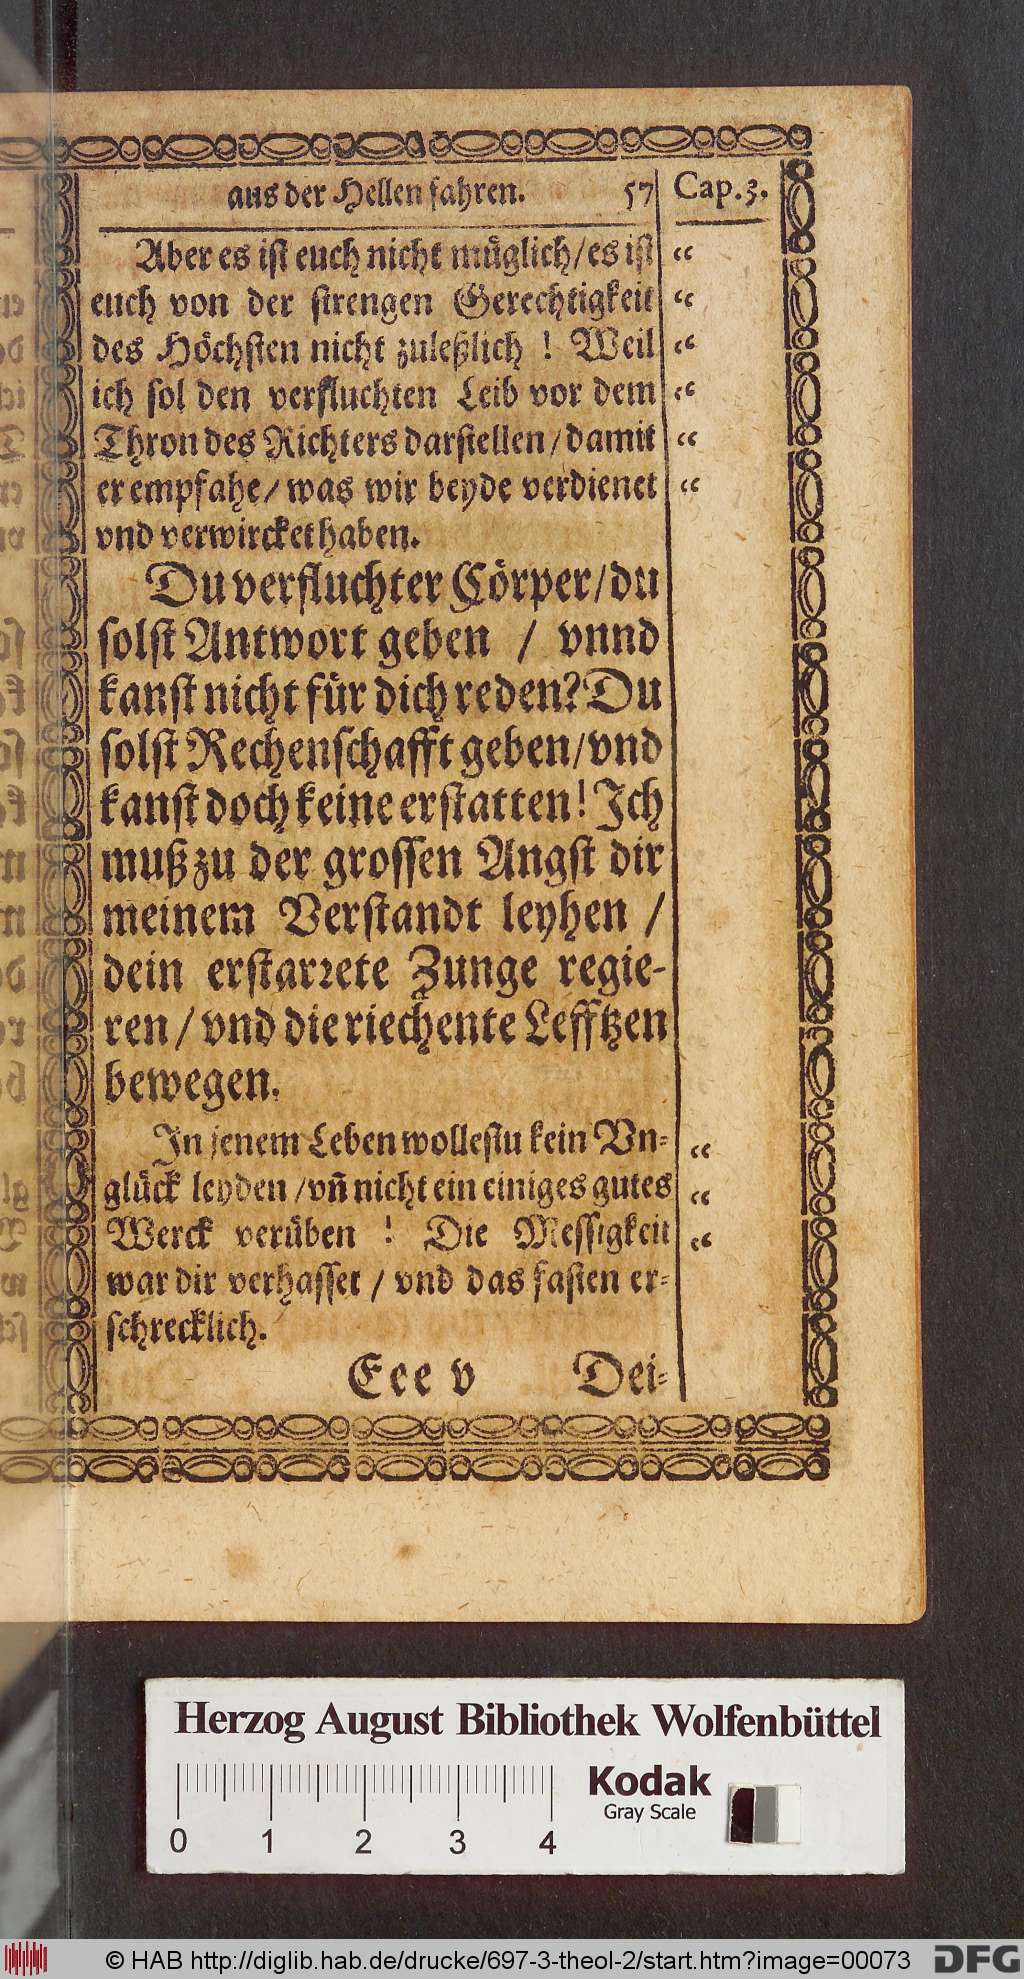 aus der Hellen fahren. 57 Cap. 3.
Aber es ist euch nicht müglich/es ist “
euch von der strengen Gerechtigkeit “
des Höchsten nicht zuleßlich ! Weil “
ich sol den verfluchten Leib vor dem “
Thron des Richters darstellen/damit “
er empfahe/ was wir beyde verdienet “
vnd verwircket haben.
Du verfluchter Cörper/du
solst Antwort geben / vnnd
kanst nicht für dich reden? Du
solst Rechenschafft geben/vnd
kanst doch keine erstatten! Ich
muß zu der grossen Angst dir
meinem Verstandt leyhen /
dein erstarrete Zunge regie-
ren / vnd die riechente Lefftzen
bewegen.
In jenem Leben wollestu kein Vn- “
glück leyden /vn̄ nicht ein einiges gutes “
Werck verüben ! Die Messigkeit “
war dir verhasset / vnd das fasten er-
schrecklich.
Eee v Dei-
Herzog August Bibliothek Wolfenbüttel
Kodak
Gray Scale
0 1 2 3 4
© HAB http://diglib.hab.de/drucke/697-3-theol-2/start.htm?image=00073 DFG